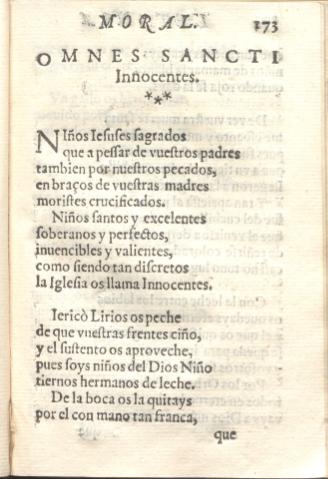 MORAL. 173
OMNES SANCTI
Innocentes.
***
NIños Iesuses sagrados
que a pessar de vuestros padres
tambien por nuestros pecados,
en braços de vuestras madres
moristes crucificados.
Niños santos y excelentes
soberanos y perfectos,
inuencibles y valientes,
como siendo tan discretos
la Iglesia os llama Innocentes.
Iericò Lirios os peche
de que vuestras frentes ciño,
y el sustento os aproveche,
pues soys niños del Dios Niño
tiernos hermanos de leche.
De la boca os la quitays
por el con mano tan franca,
que